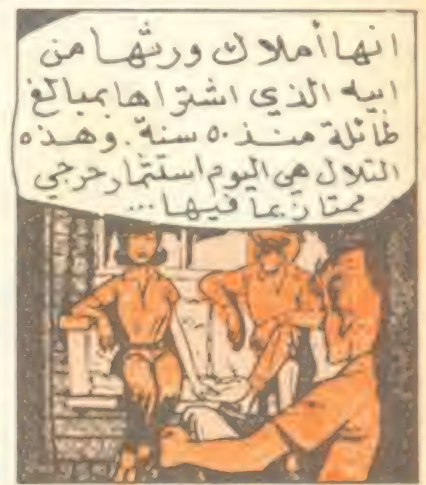 انها أملاك ورثها من
ابيه الذي اشتراها بمبالغ
طائلة منذ ٥٠ سنة. وهذه
التلال هي اليوم استثمار حرجي
ممتاز بما فيها...